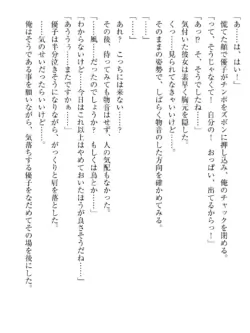 「あ、はい！」
慌てた顔で優子がチンポをズボンに押し込み、俺のチャックを閉める。
「って、そうじゃない！　自分の！　おっぱい、出てるからっ！」
「あっ。そ、そうでしたね……」
気付いた彼女は素早く胸元を隠し、
……見られてなきゃいいけど……。
そのままの姿勢で、しばらく物音のするほうを
あれ？　こっちには来ない……？
その後、待ってみても物音はせず、人の気配もなかった。
「……風……だったのでしょうか？　もしくは鳥とか……」
「わからないけど……今日はこれ以上はやめておいたほうが良さそうだね……」
「あううぅ……まだですかぁ……」
優子は半分泣きそうになりながら、がっくりと肩を落とした。
……気のせいだったらいいけど……。
俺はそうである事を願いながら、気落ちする優子をなだめてその場を後にした。